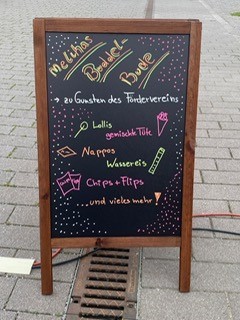 Melinas
Buddel-
Bude
→ zu Gunsten des Fördervereins
Lollis
gemischte Tüte
Nappos
Wassereis
Chips + Flips
...und vieles mehr!